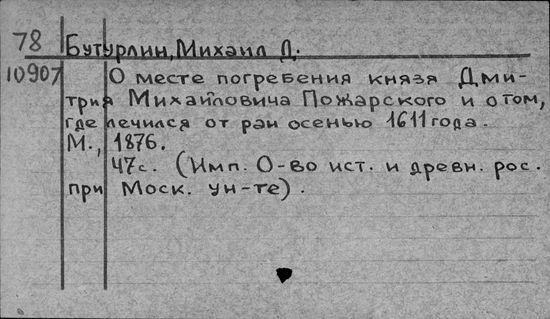 78 Бутурлин, Михаил Д.
10907 О месте погребения князя Дми-
трия Михайловича Пожарского и о том,
где лечился от ран осенью 1611 года.
М., 1876.
47с. (Имп. О-во ист. и древн. рос.
при Моск. ун-те).